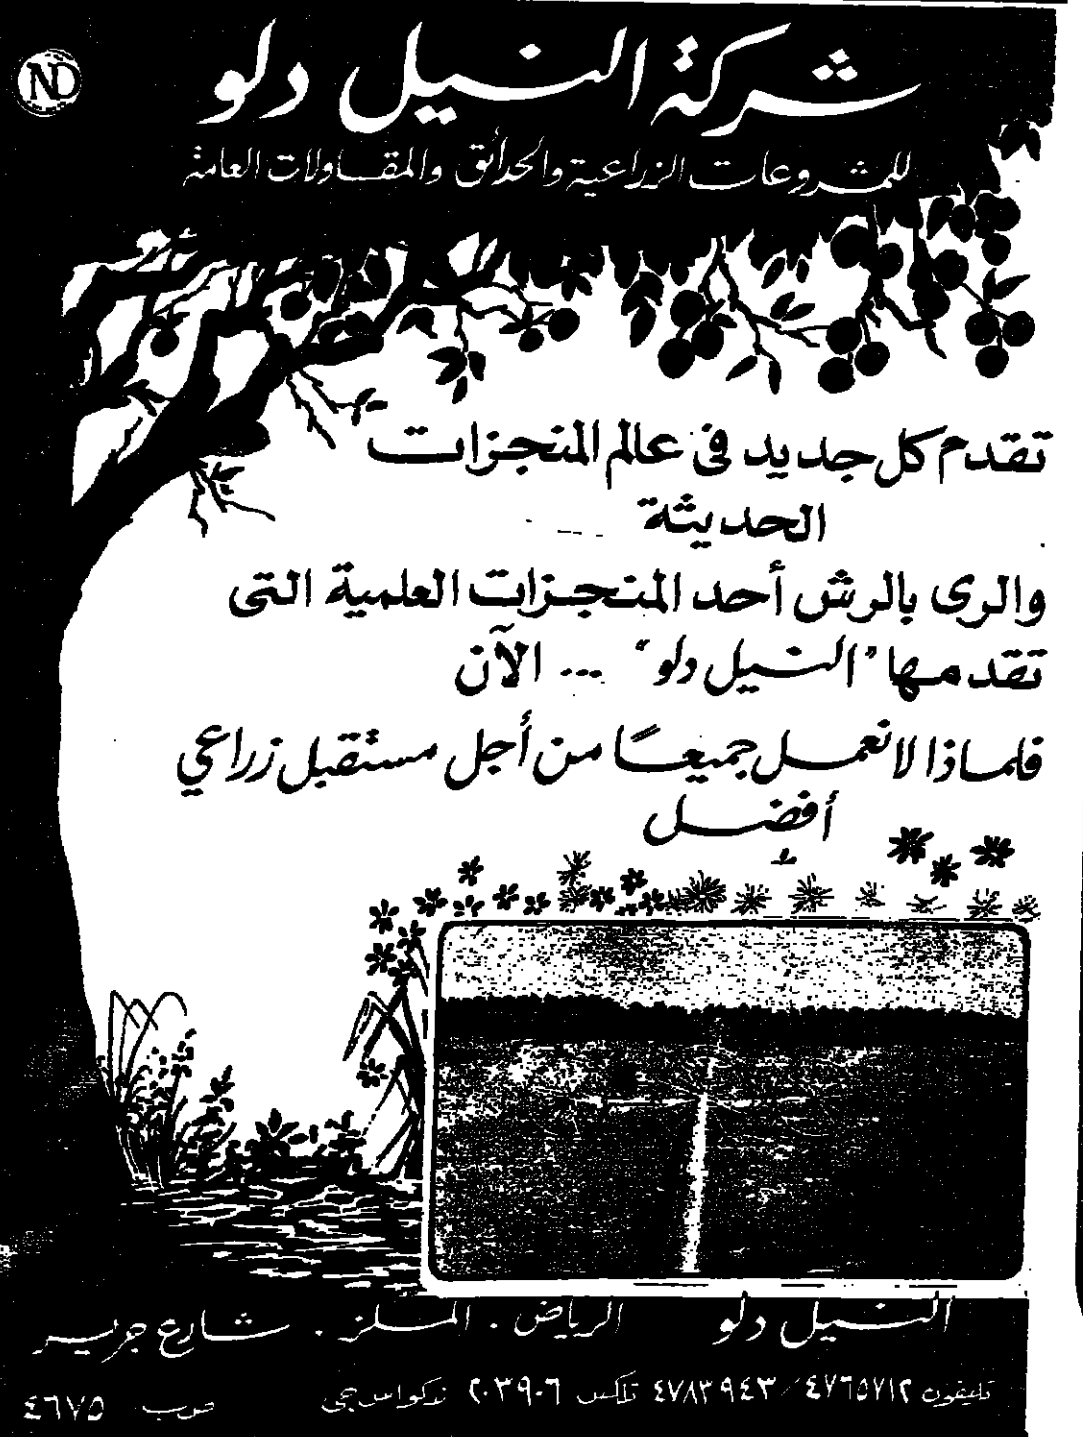 ND
شركة النيل دلو
للمشروعات الزراعية والحدائق والمقاولات العامة
تقدم كل جديد في عالم المنجزات
الحديثة
والرى بالرش أحد المنجزات العلمية التى
تقدمها "النيل دلو" ... الآن
فلماذا لا نعمل جميعًا من أجل مستقبل زراعي
أفضل
النيل دلو الرياض . الملز . شارع جرير
تليفون ٤٧٦٥٧١٢ / ٤٧٨٣٩٤٣ تلكس ٢٠٣٩٠٦
ص ب ٤٦٧٥